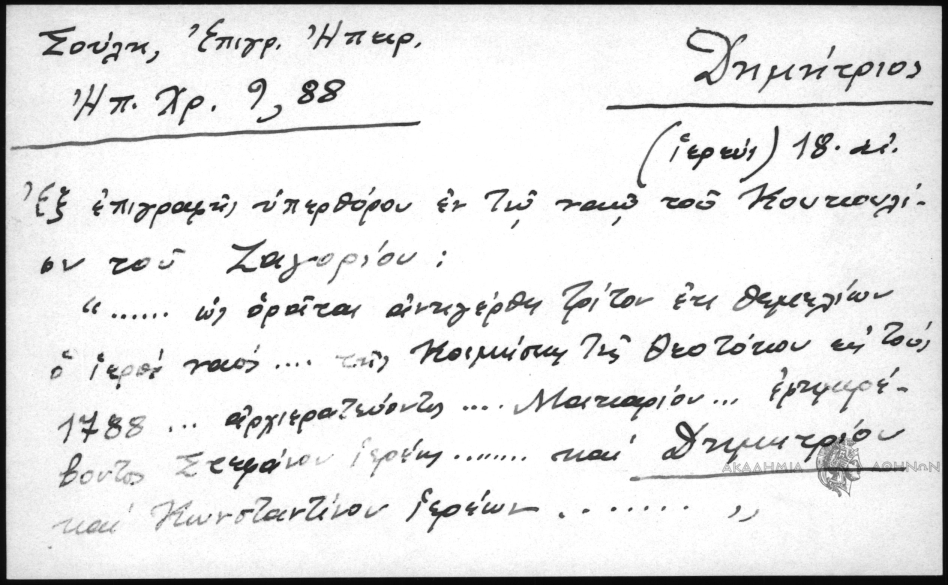 Σούλη, Ἐπιγρ. Ἠπειρ.
Ἠπ. Χρ. 9, 88
Δημήτριος
(ἱερεύς) 18. αἰ.
Ἐξ ἐπιγραφῆς ὑπερθύρου ἐν τῷ ναῷ τοῦ Κουκουλί-
ου τοῦ Ζαγορίου:
"...... ὡς ὁρᾶται ἀνηγέρθη τρίτον ἐκ θεμελίων
ὁ ἱερός ναός .... τῆς Κοιμήσεως τῆς Θεοτόκου εἰς τούς
1788 ... ἀρχιερατεύοντος .... Μακαρίου... ἐφημερέ-
βοντος Στεφάνου ἱερέως ........ καί Δημητρίου
καί Κωνσταντίνου ἱερέων ....... ,,
ΑΚΑΔΗΜΙΑ ΑΘΗΝΩΝ